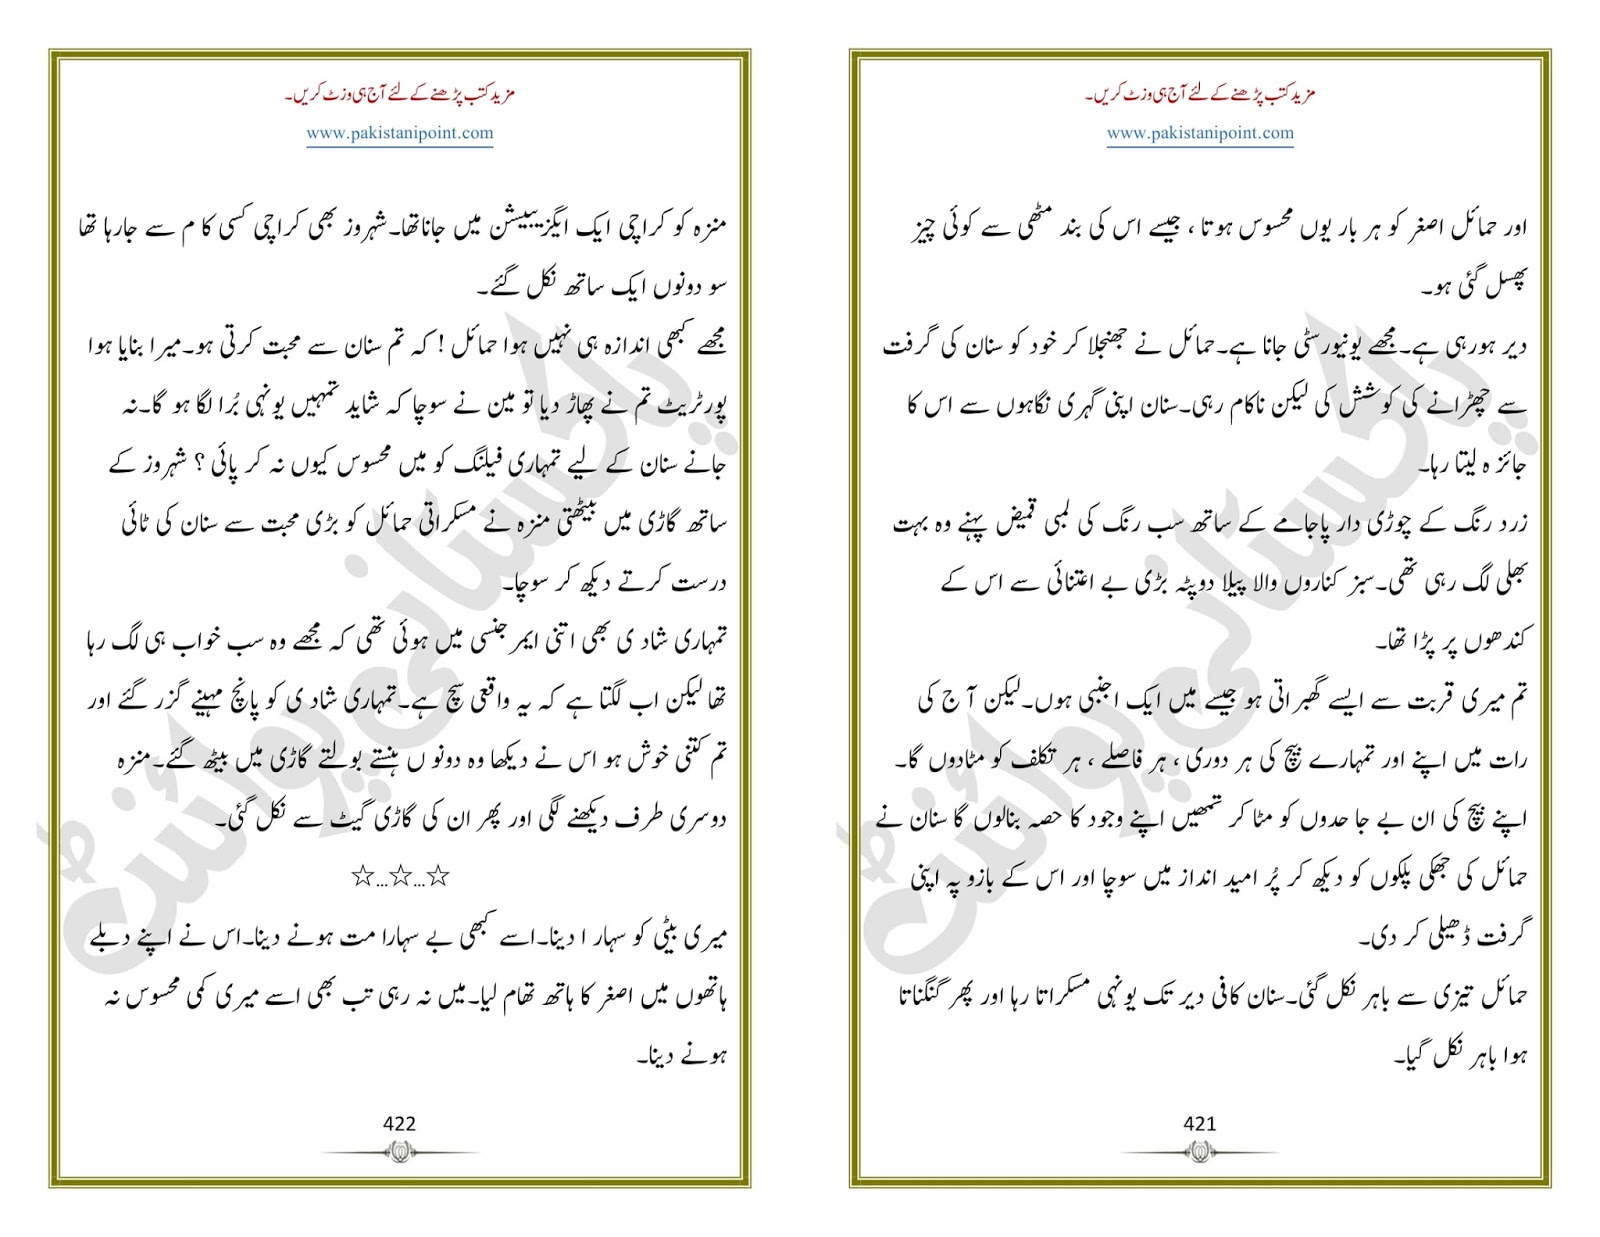 مزید کتب پڑھنے کے لئے آج ہی وزٹ کریں۔
www.pakistanipoint.com
اور حمائل اصغر کو ہر بار یوں محسوس ہوتا ، جیسے اس کی بند مٹھی سے کوئی چیز
پھسل گئی ہو۔
دیر ہورہی ہے۔مجھے یونیورسٹی جانا ہے۔حمائل نے جھنجلا کر خود کو سنان کی گرفت
سے چھڑانے کی کوشش کی لیکن ناکام رہی۔سنان اپنی گہری نگاہوں سے اس کا
جائز ہ لیتا رہا۔
زرد رنگ کے چوڑی دار پاجامے کے ساتھ سب رنگ کی لمبی قمیض پہنے وہ بہت
بھلی لگ رہی تھی۔سبز کناروں والا پیلا دوپٹہ بڑی بے اعتنائی سے اس کے
کندھوں پر پڑا تھا۔
تم میری قربت سے ایسے گھبراتی ہو جیسے میں ایک اجنبی ہوں۔لیکن آ ج کی
رات میں اپنے اور تمہارے بیچ کی ہر دوری ، ہر فاصلے ، ہر تکلف کو مٹادوں گا۔
اپنے بیچ کی ان بے جا حدوں کو مٹا کر تمھیں اپنے وجود کا حصہ بنالوں گا سنان نے
حمائل کی جھکی پلکوں کو دیکھ کر پُر امید انداز میں سوچا اور اس کے بازو پہ اپنی
گرفت ڈھیلی کر دی۔
حمائل تیزی سے باہر نکل گئی۔سنان کافی دیر تک یونہی مسکراتا رہا اور پھر گنگناتا
ہوا باہر نکل گیا۔
421
مزید کتب پڑھنے کے لئے آج ہی وزٹ کریں۔
www.pakistanipoint.com
منزہ کو کراچی ایک ایگزیبیشن میں جاناتھا۔شہروز بھی کراچی کسی کا م سے جارہا تھا
سو دونوں ایک ساتھ نکل گئے۔
مجھے کبھی اندازہ ہی نہیں ہوا حمائل ! کہ تم سنان سے محبت کرتی ہو۔میرا بنایا ہوا
پورٹریٹ تم نے پھاڑ دیا تو مین نے سوچا کہ شاید تمہیں یونہی بُرا لگا ہو گا۔نہ
جانے سنان کے لیے تمہاری فیلنگ کو میں محسوس کیوں نہ کر پائی ؟ شہروز کے
ساتھ گاڑی میں بیٹھتی منزہ نے مسکراتی حمائل کو بڑی محبت سے سنان کی ٹائی
درست کرتے دیکھ کر سوچا۔
تمہاری شاد ی بھی اتنی ایمر جنسی میں ہوئی تھی کہ مجھے وہ سب خواب ہی لگ رہا
تھا لیکن اب لگتا ہے کہ یہ واقعی سچ ہے۔تمہاری شاد ی کو پانچ مہینے گزر گئے اور
تم کتنی خوش ہو اس نے دیکھا وہ دونو ں ہنستے بولتے گاڑی میں بیٹھ گئے۔منزہ
دوسری طرف دیکھنے لگی اور پھر ان کی گاڑی گیٹ سے نکل گئی۔
☆...☆...☆
میری بیٹی کو سہار ا دینا۔اسے کبھی بے سہارا مت ہونے دینا۔اس نے اپنے دبلے
ہاتھوں میں اصغر کا ہاتھ تھام لیا۔میں نہ رہی تب بھی اسے میری کمی محسوس نہ
ہونے دینا۔
422
پاکستانی پوائنٹ
پاکستانی پوائنٹ